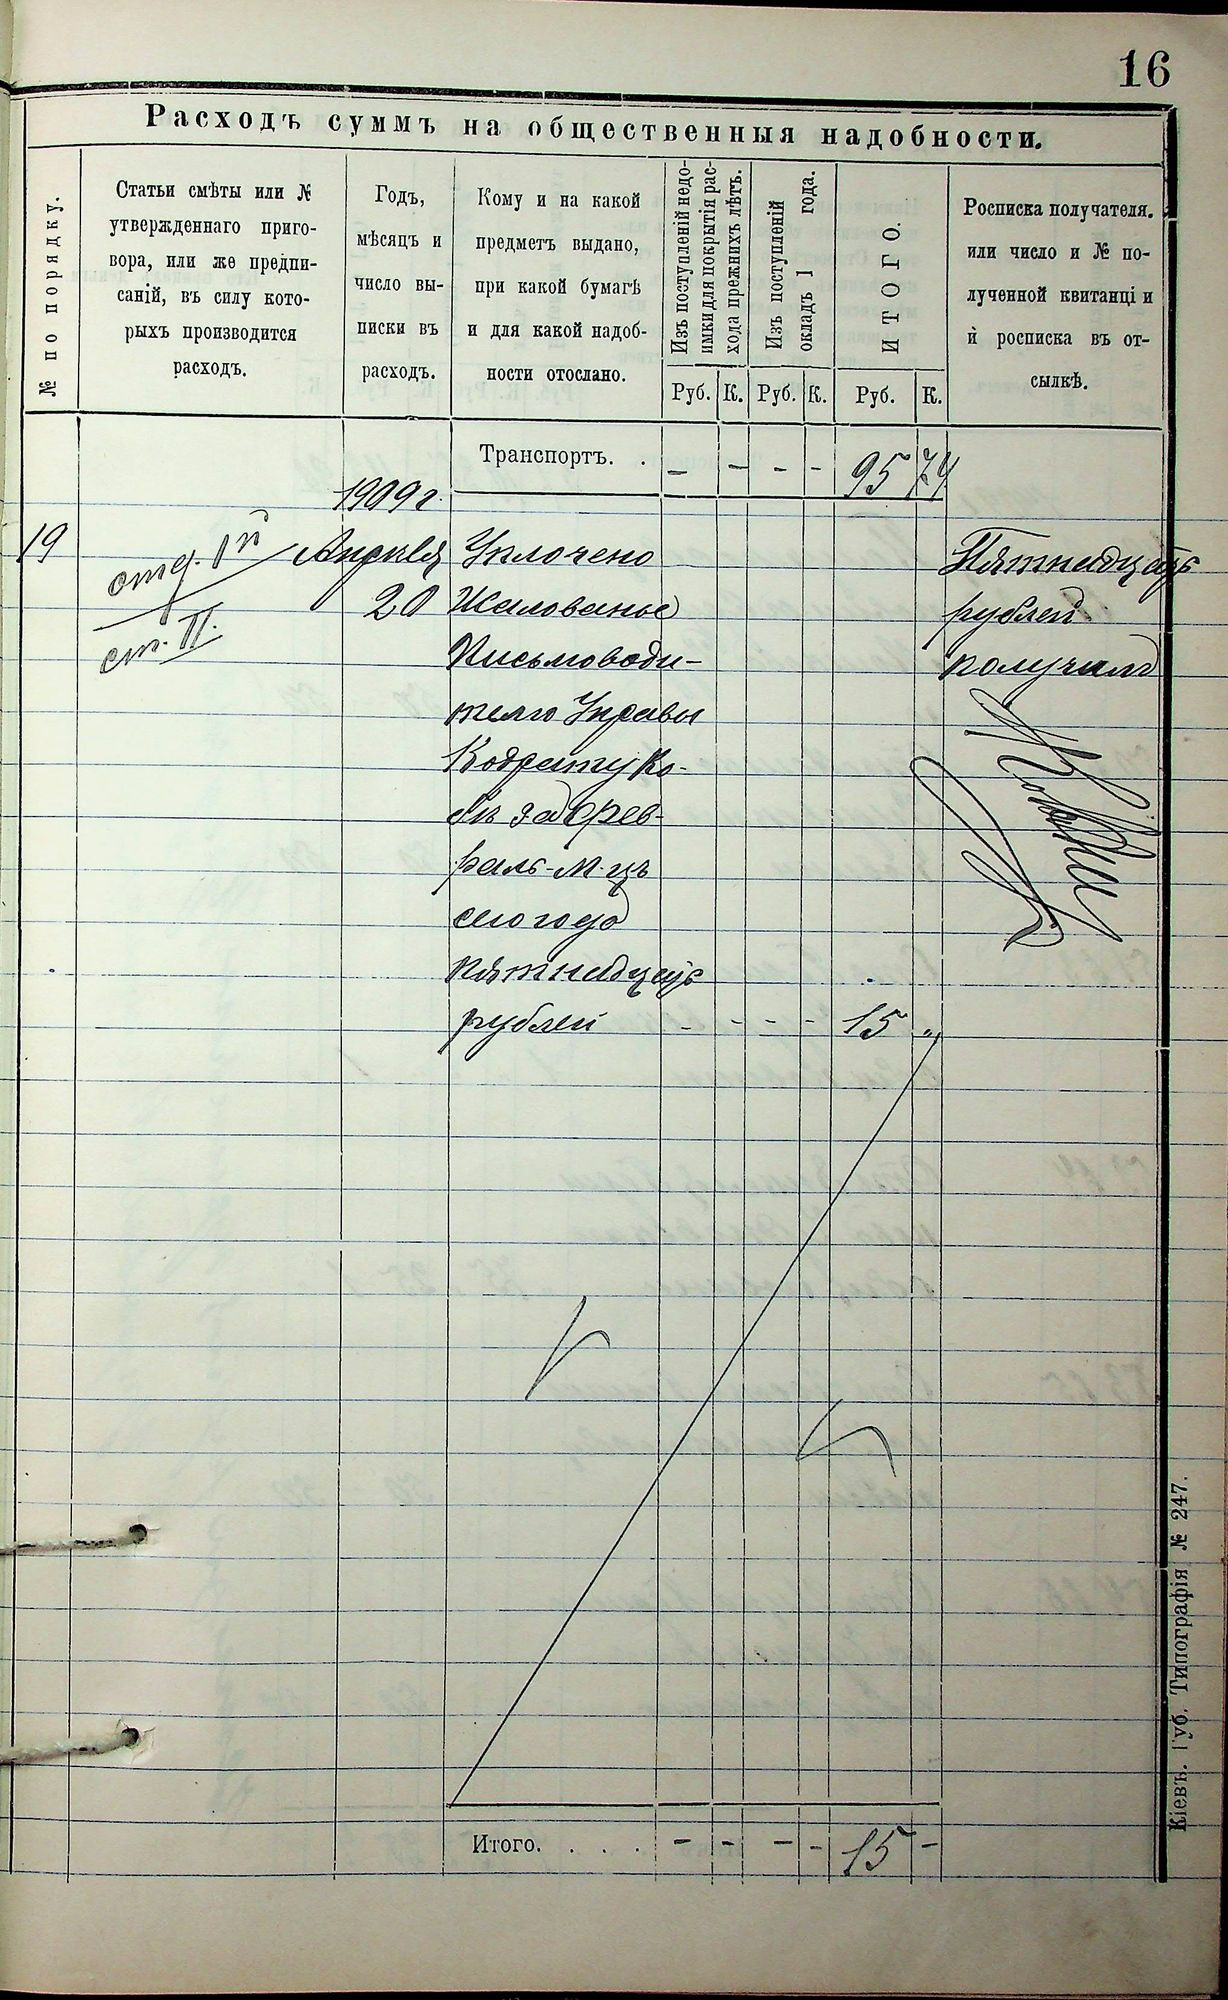 16
Расходъ суммъ на общественныя надобности.
№ по порядку.
Статьи смѣты или №
утвержденнаго приго-
вора, или же предпи-
саній, въ силу кото-
рыхъ производится
расходъ.
Годъ,
мѣсяцъ и
число вы-
писки въ
расходъ.
Кому и на какой
предметъ выдано,
при какой бумагѣ
и для какой надоб-
ности отослано.
Изъ поступленій недо-
имки для покрытія рас-
хода прежнихъ лѣтъ.
Изъ поступленій
окладъ 1 года.
ИТОГО.
Росписка получателя.
или число и № по-
лученной квитанці и
и росписка въ от-
сылкѣ.
Руб. К. Руб. К. Руб. К.
Транспортъ. . - - - - 95 74
1909 г.
19
отд. Iй
ст. II.
Апрѣля
20
Уплочено
Жалованье
Письмоводи-
телю Управы
Кодрату Ко-
за Фев-
раль-м-цъ
сего года
пятнадцать
рублей - - - - 15 "
Пятнадцать
рублей
получилъ
Итого. . . . - - - - 15 -
Кіевъ. Губ. Типографія № 247.